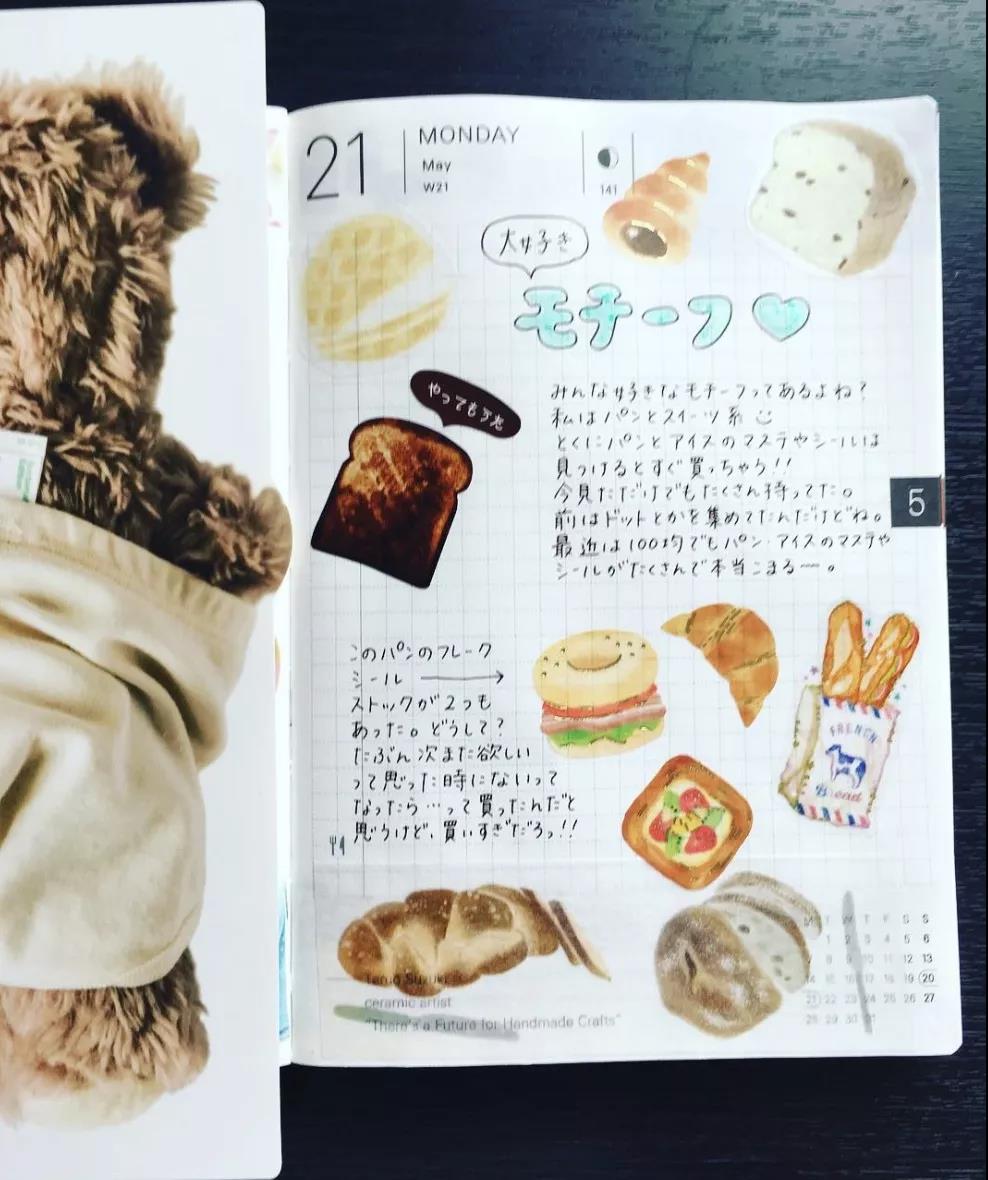 21
MONDAY
May
W21
141
大好き
モチーフ♡
やってもうた
みんな好きなモチーフってあるよね?
私はパンとスイーツ系
とくにパンとアイスのマステやシールは
見つけるとすぐ買っちゃう!!
今見ただけでもたくさん持ってた。
前はドットとかを集めてたんだけどね。
最近は100均でもパン・アイスのマステや
シールがたくさんで本当こまるー。
5
このパンのフレーク
シール →
ストックが2つも
あった。どうして?
たぶん次また欲しい
って思った時にないって
なったら…って買ったんだと
思うけど、買いすぎだろっ!!
FRENCH
Bread
Teruo Suzuki
ceramic artist
"There's a Future for Handmade Crafts"
M T W T F S S
1 2 3 4 5 6
8 9 10 11 12 13
14 15 16 17 18 19 20
21 22 23 24 25 26 27
28 29 30 31